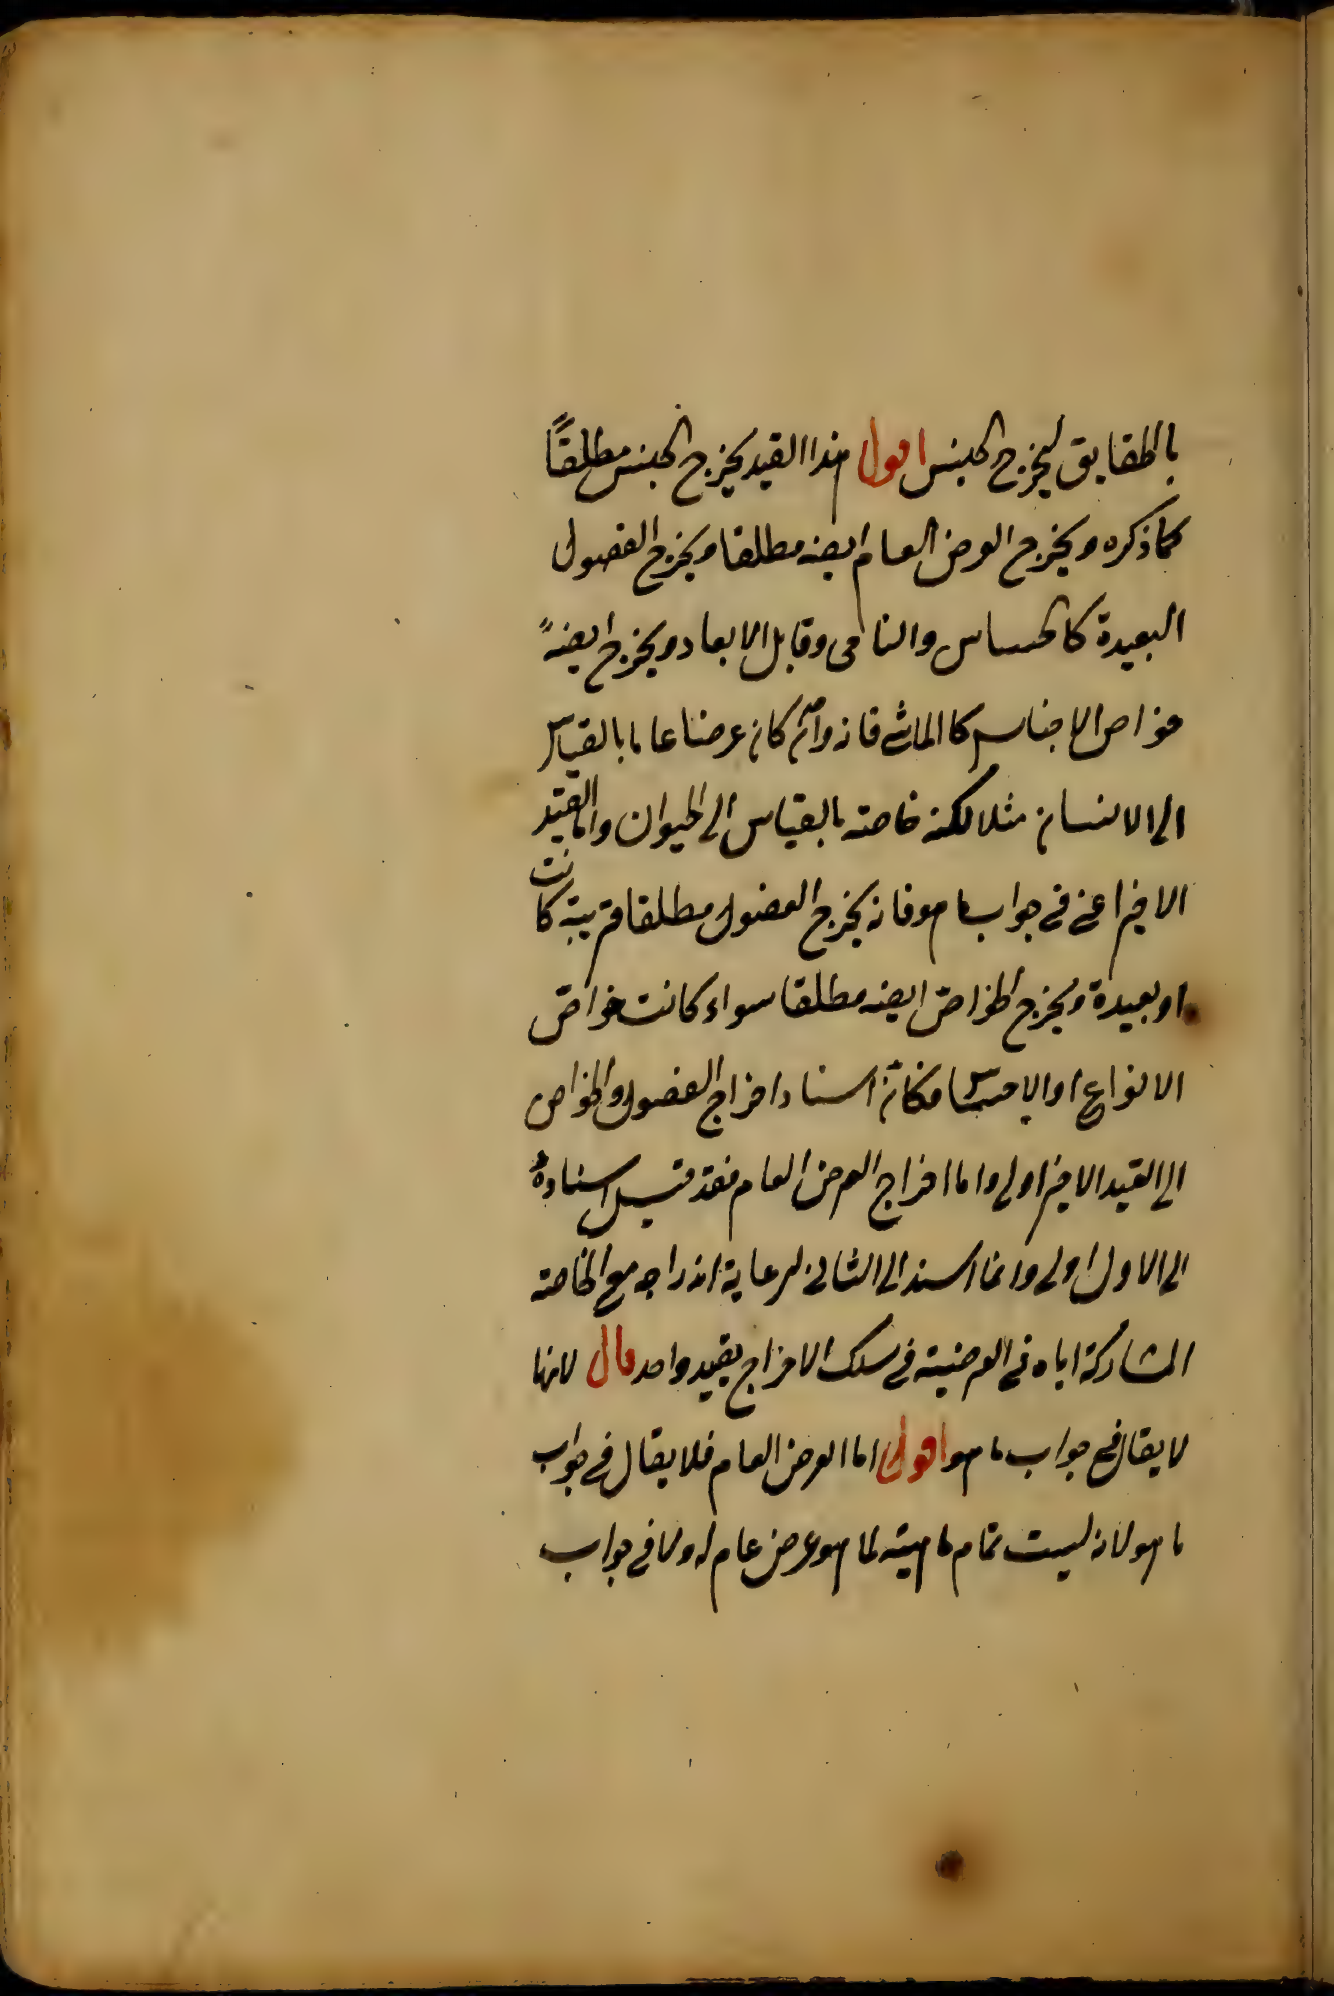 بالحقايق ليخرج الجنس اقول هذا القيد يخرج الجنس مطلقاً
كما ذكره ويخرج العرض العام ايضه مطلقا ويخرج الفصول
البعيدة كالحساس والنامى وقابل الابعاد ويخرج ايضهً
خواص الاجناس كالماشى فانه وان كان عرضا عاما بالقياس
الى الانسان مثلا لكنه خاصة بالقياس الى الحيوان واما القيد
الاخير اعنى فى جواب ما هو فانه يخرج الفصول مطلقا قريبة كانت
او بعيدة ويخرج الخواص ايضه مطلقا سواء كانت خواص
الانواع او الاجناس فكان اسناد اخراج الفصول والخواص
الى القيد الاخير اولى واما اخراج العرض العام فقد قيل اسناده
الى الاول اولى وانما اسند الى الثانى لرعاية اندراجه مع الخاصة
المشاركة اياه فى العرضية فى سلك الاخراج بقيد واحد قال لانها
لا يقال فى جواب ما هو اقول اما العرض العام فلا يقال فى جواب
ما هو لانه ليست تمام ماهية لما هو عرض عام له ولا فى جواب